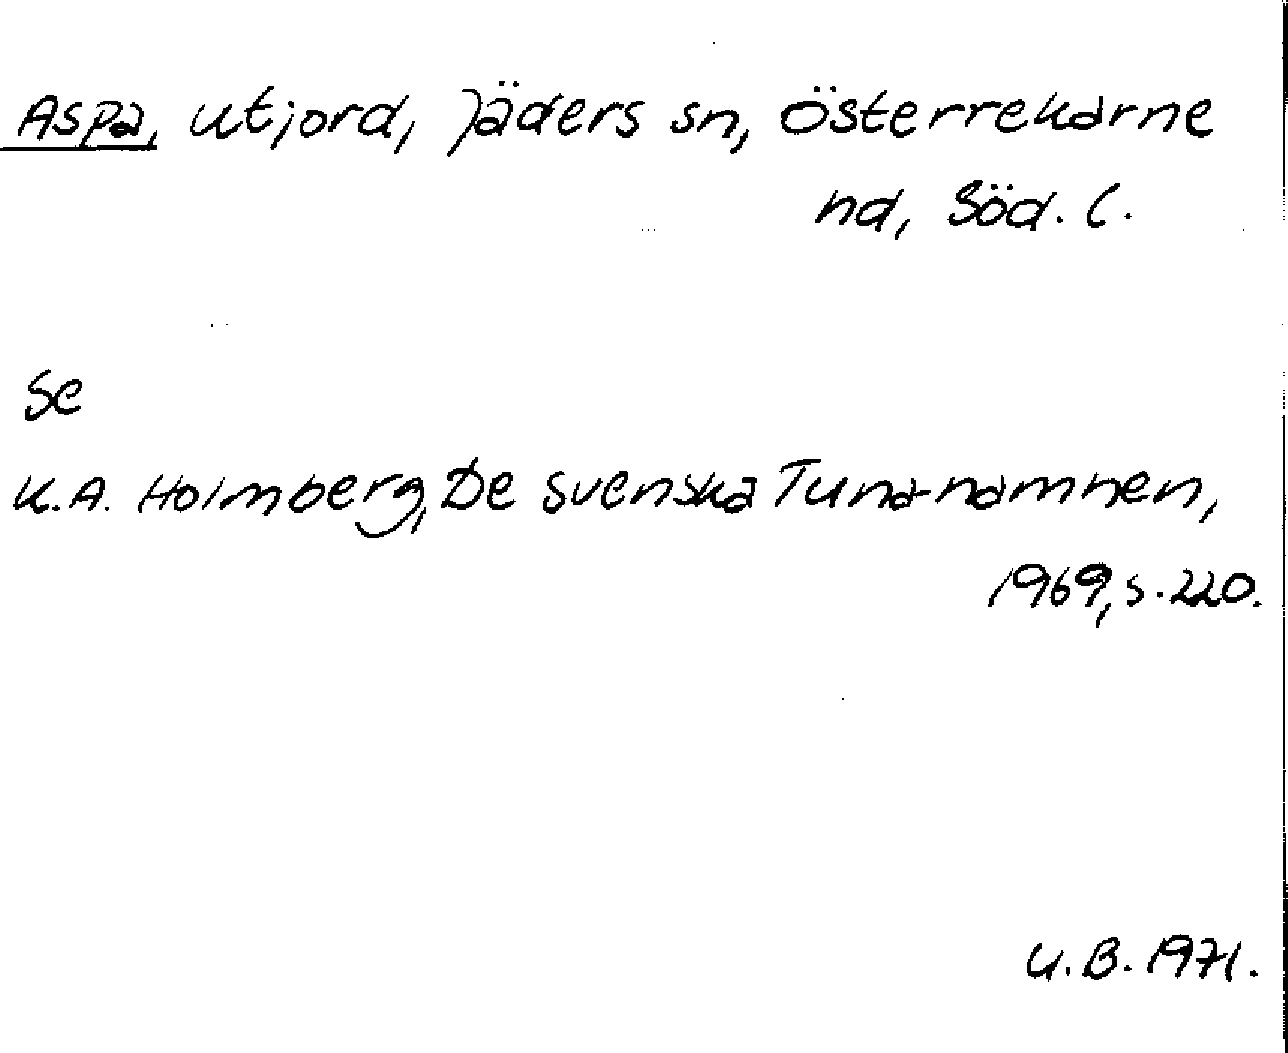 Aspa, utjord, Jäders sn, Österrekarne
hd, Söd. l.
Se
K.A. Holmberg, De svenska Tuna-namnen,
1969, s. 220.
U.B. 1971.